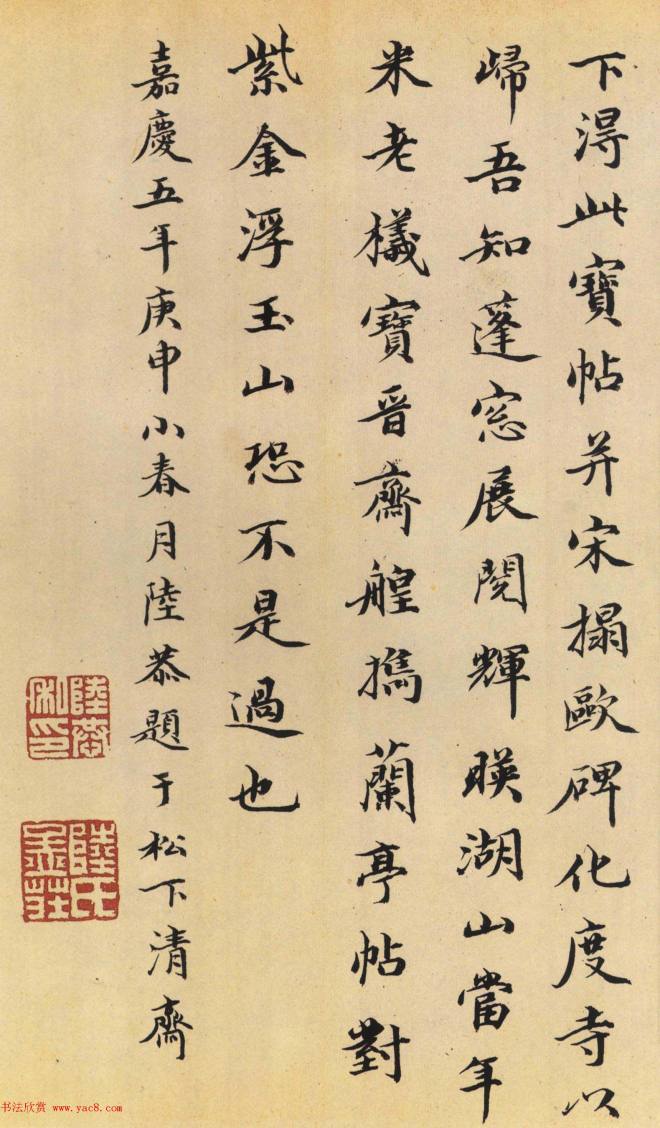 下淂此寶帖并宋搨歐碑化度寺以
歸吾知蓬窓展閱輝暎湖山當年
米老檥寶晉齋艎攜蘭亭帖對
紫金浮玉山恐不是過也
嘉慶五年庚申小春月陸恭題于松下清齋
陸恭私印
陸氏
书法欣赏 www.yac8.com